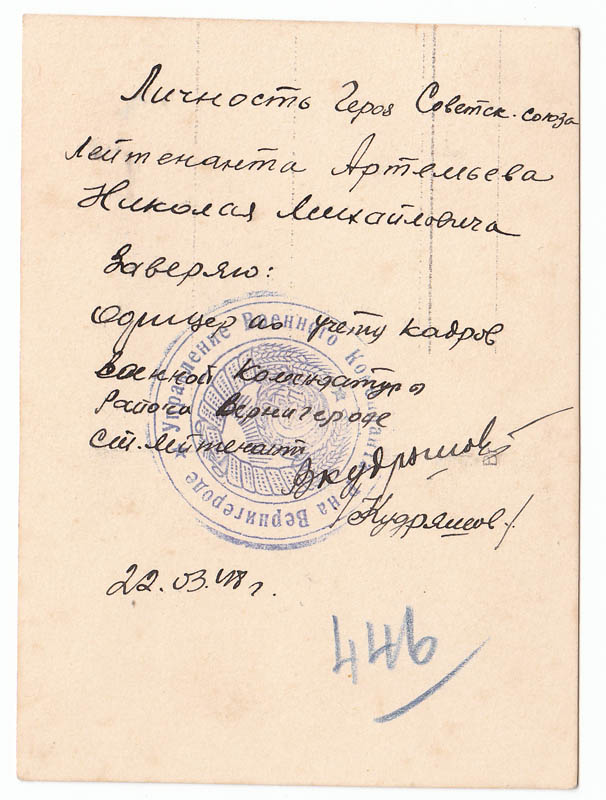 Личность Героя Советск. союза
Лейтенанта Артемьева
Николая Михайловича
Заверяю:
Офицер по учету кадров
военной Комендатуры
Района Вернигероде
ст. лейтенант
/Кудряшов./
22.03.48 г.
446
Управление Военного Коменданта
района Вернигероде